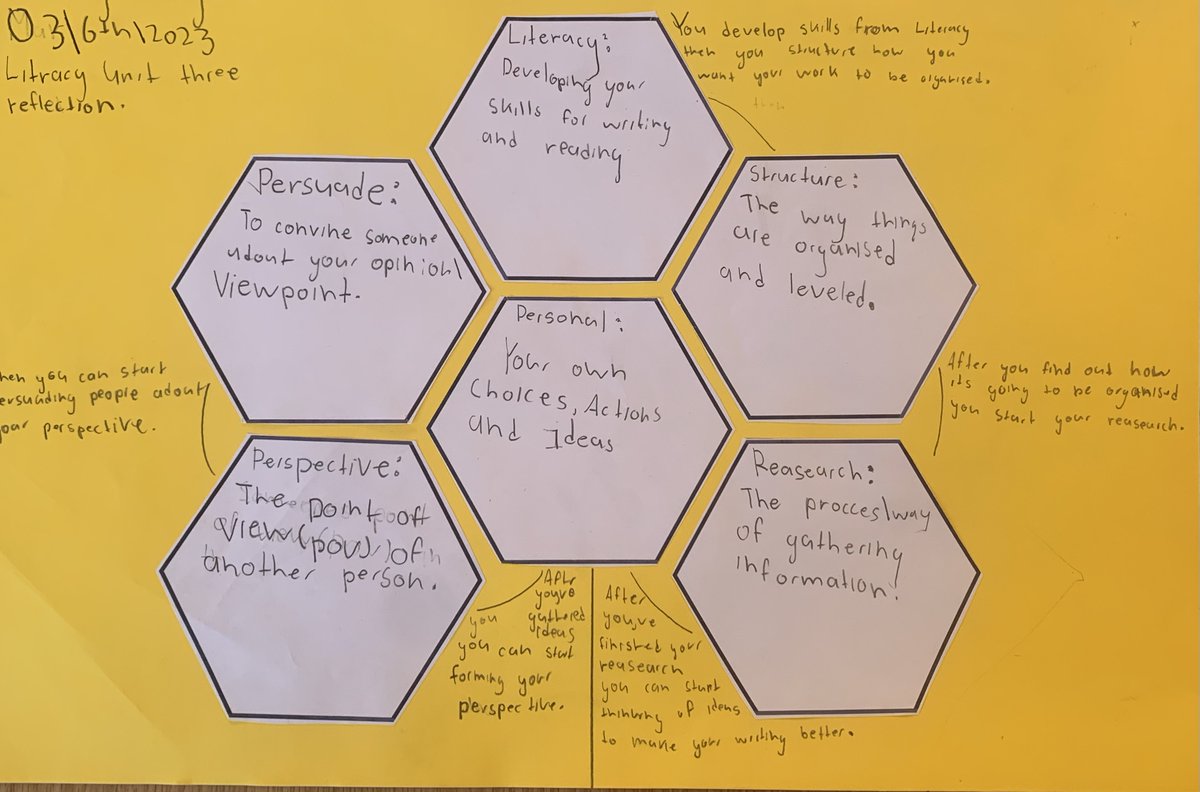 03/6th/2023
Litracy Unit three
reflection.
Literacy:
Developing your
skills for writing
and reading
You develop skills from Literacy
then you structure how you
want your work to be organised.
then
Persuade:
To convine someone
adout your opinion\
Viewpoint.
Structure:
The way things
are organised
and leveled.
Personal:
Your own
Choices, Actions
and Ideas
hen you can start
ersuading people adout
our perspective.
After you find out how
its going to be organised
you start your reasearch.
Perspective:
The point off
view (pov) of
another person.
Reasearch:
The procces\way
of gathering
information.
After
you've
you gathered
ideas
you can start
forming your
perspective.
After
you've
finished your
reasearch
you can start
thinking of ideas
to make your writing better.